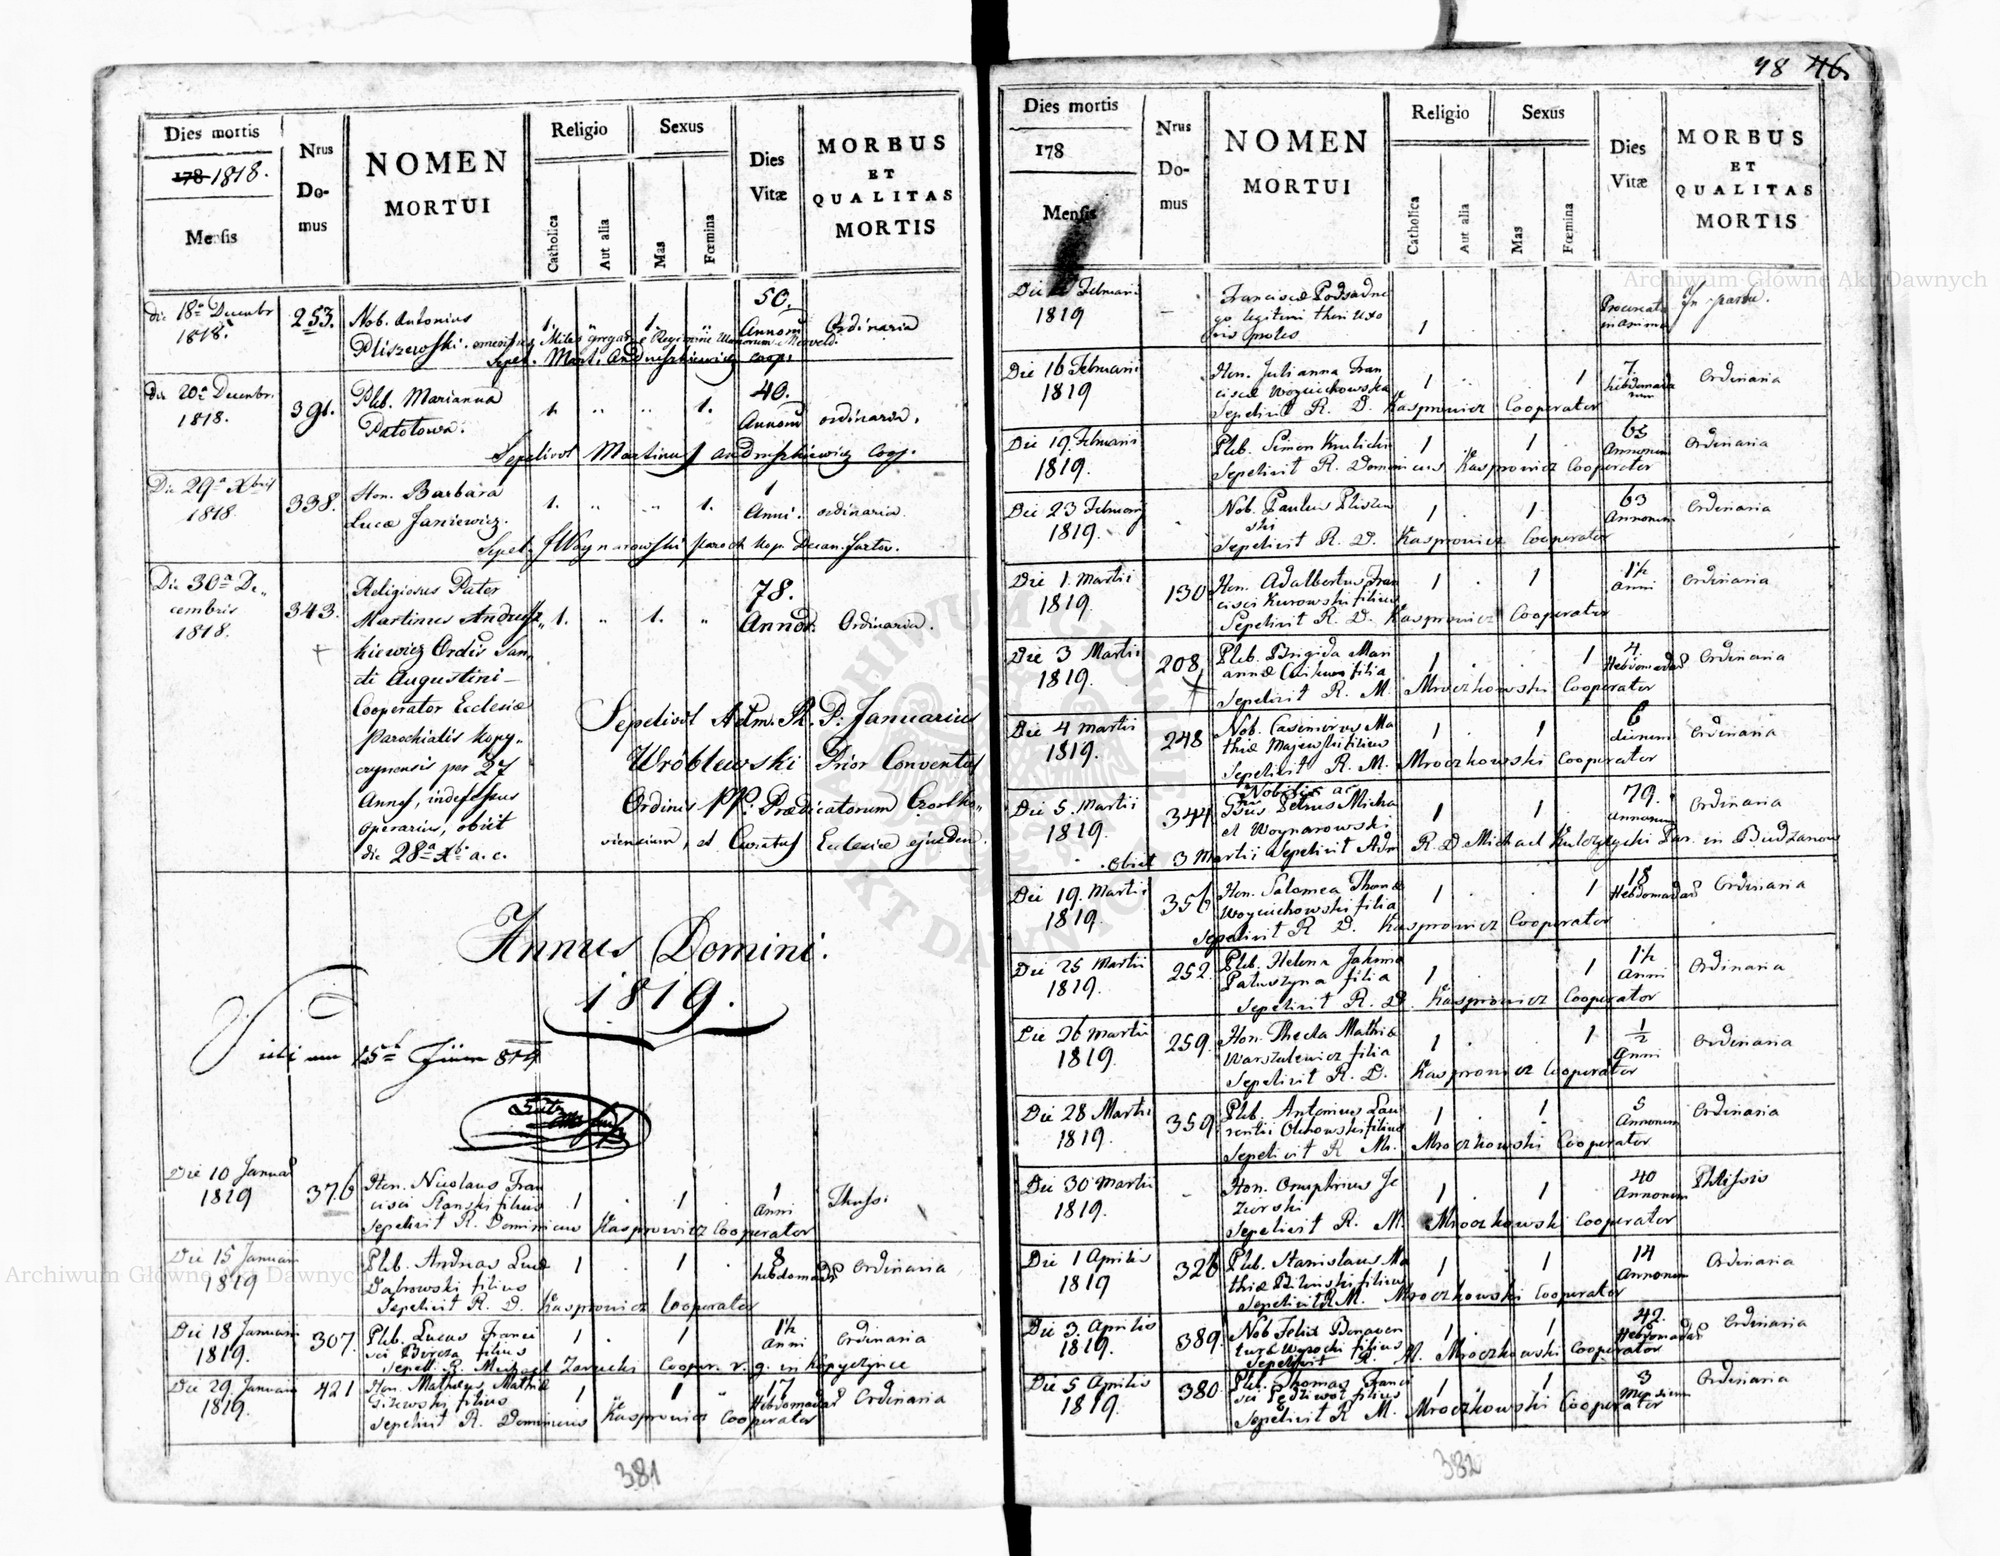 Dies mortis
178 1818.
Mensis
Nrus
Do-
mus
NOMEN
MORTUI
Religio
Catholica
Aut alia
Sexus
Mas
Fœmina
Dies
Vitæ
MORBUS
ET
QUALITAS
MORTIS
die 18a Decembr
1818.
253.
Nob. Antonius
Pliszewski. emeritus Miles gregar. e Regimine
Sepel. Mart. Andruszkiewicz coop.
1. " 1. "
50.
Annorum
Ordinaria
die 20a Decembr.
1818.
391.
Pleb. Marianna
Patotowa.
1. " " 1.
40.
Annorum
ordinaria.
Sepelivit Martinus Andruszkiewicz Coop.
Die 29a Xbris
1818.
338.
Hon. Barbara
Lucæ Janiewicz.
1. " " 1.
1
Anni.
ordinaria.
Sepel. J Woynarowski Paroch Kop. Decan.
Die 30a De-
cembris
1818.
343.
Religiosus Pater
Martinus Andrusz-
kiewicz Ordis San-
cti Augustini
Cooperator Ecclesiæ
Parochialis Kopy-
czynensis per 27
Annos, indefessus
Operarius, obiit
die 28a Xb a. c.
1. " 1. "
78.
Annor.
Ordinaria.
Sepelivit Adm. R. P. Januarius
Wróblewski Prior Conventus
Ordinis PP. Prædicatorum Czortko-
viensium, et Curatus Ecclesiæ ejusdem.
Annus Domini.
1819.
15ten 819
Die 10 Januar
1819
376
Hon. Nicolaus Fran
cisci Stanski filius
Sepelivit R. Dominicus Kasprowicz Cooperator
1 . 1 .
1
Anni
Thussi
Die 15 Januari
1819
Pleb. Andreas Lucæ
Dąbrowski filius
Sepelivit R. D. Kasprowicz Cooperator
1 . 1 .
8
hebdomadar
Ordinaria
Die 18 Januari
1819.
307.
Pleb. Lucas Franci
sci Bircza filius
Sepell. R. Michael Zarucki Cooper. r. g. in Kopyczynce
1 . 1
1½
Anni
Ordinaria
Die 29. Januari
1819.
421
Hon. Matheus Mathiæ
Gizewski filius
Sepelivit R. Dominicus Kasprowicz Cooperator
1 1 "
17
Hebdomadar
Ordinaria
381
48 46
Dies mortis
178
Mensis
Nrus
Do-
mus
NOMEN
MORTUI
Religio
Catholica
Aut alia
Sexus
Mas
Fœmina
Dies
Vitæ
MORBUS
ET
QUALITAS
MORTIS
Die Februarii
1819
Francisci Podsadne
go legitimi thori Uxo
ris proles
1
In partu.
Die 16 Februarii
1819
Hon. Julianna Fran
cisca Woyciechowska
Sepelivit R. D. Kasprowicz Cooperator
1 . . 1
7.
hebdomada
rum
Ordinaria
Die 19. Februarii
1819.
Pleb. Simon Krulicki
Sepelivit R. Dominicus Kasprowicz Cooperator
1 . 1 .
65
Annorum
Ordinaria
Die 23 Februarij
1819.
Nob. Paulus Pliszew
ski
Sepelivit R. D. Kasprowicz Cooperator
1 . 1 .
63
Annorum
Ordinaria
Die 1. Martii
1819.
130
Hon. Adalbertus Fran
cisci Kurowski filius
Sepelivit R. D. Kasprowicz Cooperator
1 . 1
1½
Anni
Ordinaria
Die 3 Martii
1819.
208
Pleb. Brigida Mari
annæ filia
Sepelivit R. M. Mroczkowski Cooperator
1 . . 1
4.
Hebdomadar
Ordinaria
Die 4 Martii
1819.
248
Nob. Casimirus Ma
thiæ Majewski filius
Sepelivit R. M. Mroczkowski Cooperator
1 . 1
6
dierum
Ordinaria
Die 5. Martii
1819.
344
Nobilis ac
Gsus Petrus Micha
el Woynarowski
obiit 3 Martii Sepelivit Adm R. D Michael Kulczycki Par. in Budzanow
1 1 .
79.
Annorum
Ordinaria
Die 19. Martii
1819.
356
Hon. Salomea Thomæ
Woyciechowski filia
Sepelivit R D. Kasprowicz Cooperator
1 . . 1
18
Hebdomadar
Ordinaria
Die 25 Martii
1819.
252.
Pleb. Helena
filia
Sepelivit R. D. Kasprowicz Cooperator
1 . 1
1½
Anni
Ordinaria
Die 26 Martii
1819.
259.
Hon. Thecla Mathiæ
Warszulewicz filia
Sepelivit R. D. Kasprowicz Cooperator
1 . 1
½
Anni
Ordinaria
Die 28 Martii
1819.
359.
Pleb. Antonius Lau
rentii Olchowski filius
Sepelivit R M. Mroczkowski Cooperator
1 . 1
5
Annorum
Ordinaria
Die 30 Martii
1819.
Hon. Onuphrius Je
ziorski
Sepelivit R. M. Mroczkowski Cooperator
1 . 1
40
Annorum
Phtissis
Die 1 Aprilis
1819
326
Pleb. Stanislaus Ma
thiæ Biliński filius
Sepelivit R M. Mroczkowski Cooperator
1 . 1
14
Annorum
Ordinaria
Die 3. Aprilis
1819.
389.
Nob Felix Bonaven
turæ Wysocki filius
Sepelivit R. M. Mroczkowski Cooperator
1 . 1
42.
Hebdomadar
Ordinaria
Die 5 Aprilis
1819.
380
Pleb. Thomas Franci
sci Pędziwot filius
Sepelivit R M. Mroczkowski Cooperator
1 . 1
3
Mensium
Ordinaria
382
Archiwum Główne Akt Dawnych
Archiwum Główne Akt Dawnych
ARCHIWUM GŁÓWNE AKT DAWNYCH